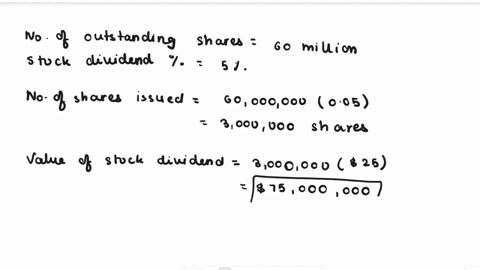 No. of outstanding shares = 60 million
stock dividend %. = 5%.
No. of shares issued = 60,000,000 (0.05)
= 3,000,000 shares
Value of stock dividend = 3,000,000 ($25)
= $75,000,000